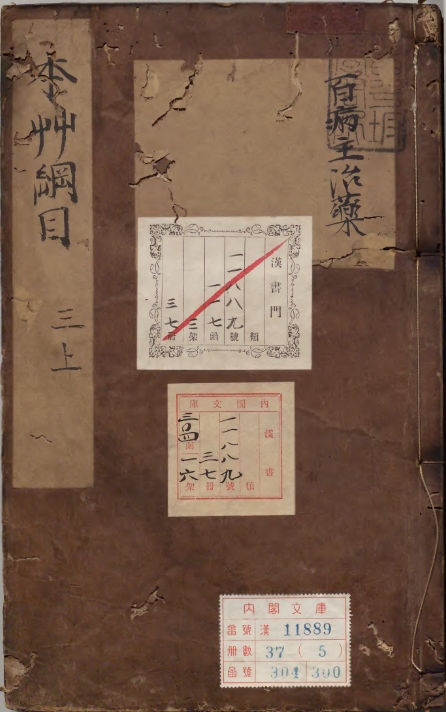 本艸綱目
三上
百病主治藥
漢書門
一一八八九
一一七
三
三七
類
號
函
架
冊
內閣文庫
漢書
一一八八九
三七
三〇四
一六
類
號
冊
函
架
內閣文庫
番號 漢 11889
冊數 37 ( 5 )
函號 304 300